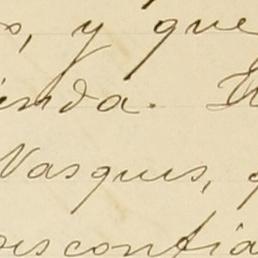 s, y que
inda.
Vasques, q
desconfia